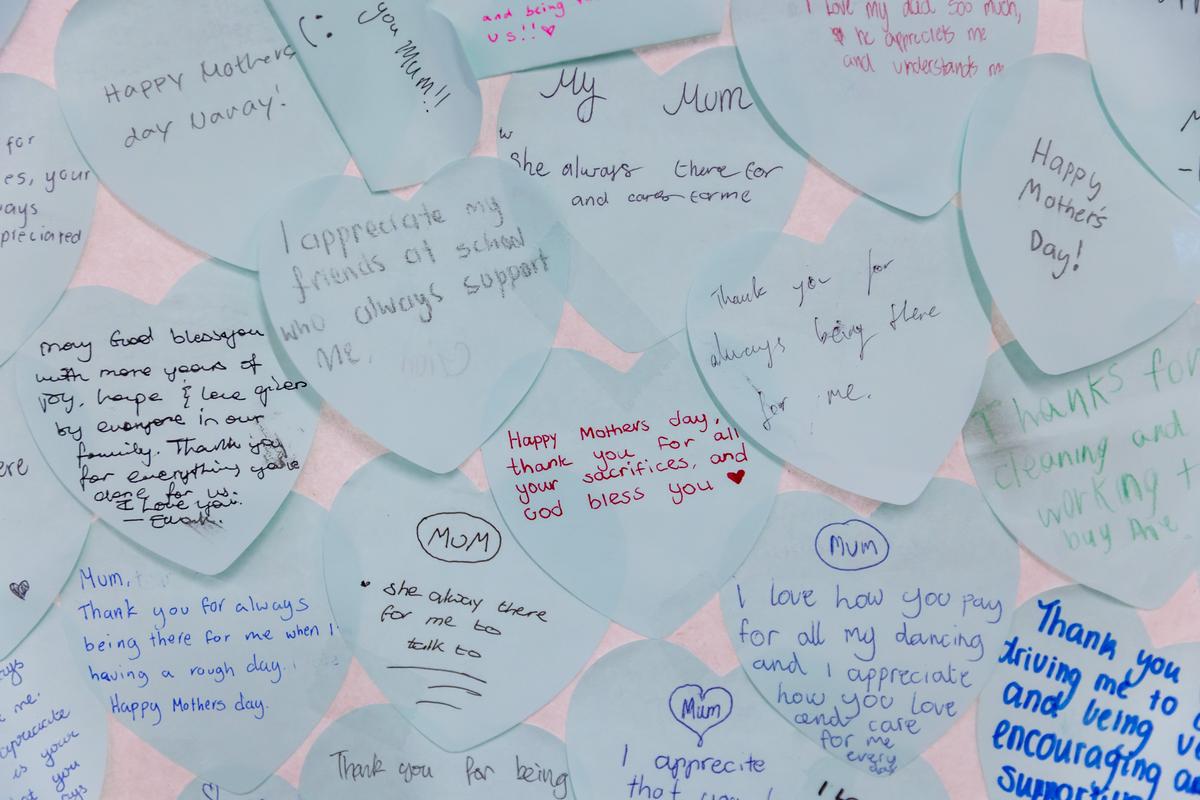 Happy Mothers
day Navay!
(:
you Mum!!
and being
us!!
I love my dad soo much,
he appreciets me
and understands me
My Mum
She always there for
and cares for me
Happy
Mother's
Day!
for
es, your
ways
preciated
I appreciate my
friends at school
who always support
Me.
Thank you for
always being there
for me.
May God bless you
with more years of
joy, hope & love given
by everyone in our
family. Thank you
for everything you've
done for us.
I Love you.
Happy Mothers day,
thank you for all
your sacrifices, and
God bless you
Thanks for
cleaning and
working +
buy
ere
MUM
she alway there
for me to
talk to
Mum
I love how you pay
for all my dancing
and I appreciate
how you love
and care
for me
every
day
Mum,
Thank you for always
being there for me when I
having a rough day.
Happy Mothers day.
Thank you
driving me to
and being
encouraging
me.
is your
you
Mum
I apprecite
that
Thank you for being